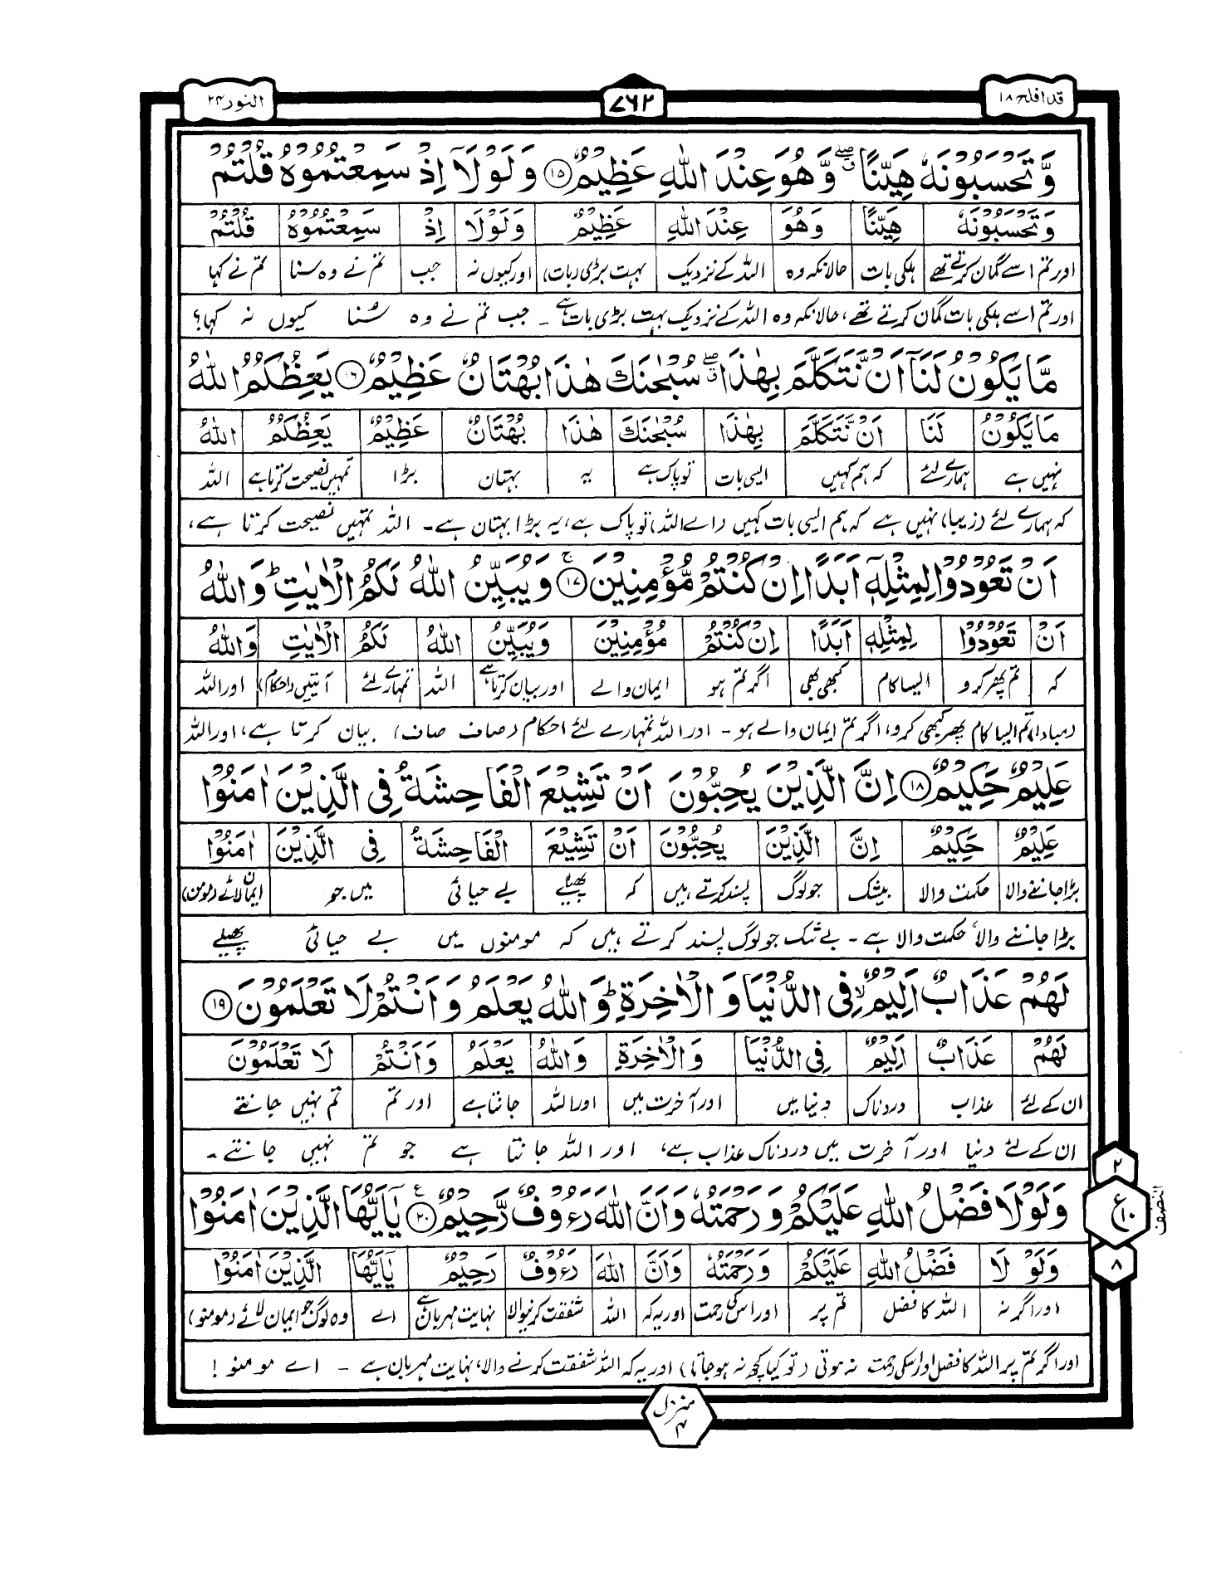 قد افلح ۱۸
۷۶۲
النور ۲۴
وَّتَحْسَبُوْنَهٗ هَيِّنًا ۖ وَّهُوَ عِنْدَ اللّٰهِ عَظِيْمٌ ۝۱۵ وَلَوْلَآ اِذْ سَمِعْتُمُوْهُ قُلْتُمْ
وَتَحْسَبُوْنَهٗ هَيِّنًا وَهُوَ عِنْدَ اللّٰهِ عَظِيْمٌ وَلَوْلَا اِذْ سَمِعْتُمُوْهُ قُلْتُمْ
اور تم اسے گمان کرتے تھے ہلکی بات حالانکہ وہ اللہ کے نزدیک بہت بڑی (بات) اور کیوں نہ جب تم نے وہ سنا تم نے کہا
اور تم اسے ہلکی بات گمان کرتے تھے، حالانکہ وہ اللہ کے نزدیک بہت بڑی بات ہے ۔ جب تم نے وہ سُنا کیوں نہ کہا؟
مَّا يَكُوْنُ لَنَآ اَنْ نَّتَكَلَّمَ بِهٰذَا ۖ سُبْحٰنَكَ هٰذَا بُهْتَانٌ عَظِيْمٌ ۝۱۶ يَعِظُكُمُ اللّٰهُ
مَا يَكُوْنُ لَنَا اَنْ نَّتَكَلَّمَ بِهٰذَا سُبْحٰنَكَ هٰذَا بُهْتَانٌ عَظِيْمٌ يَعِظُكُمُ اللّٰهُ
نہیں ہے ہمارے لئے کہ ہم کہیں ایسی بات تو پاک ہے یہ بہتان بڑا تمہیں نصیحت کرتا ہے اللہ
کہ ہمارے لئے (زیبا) نہیں ہے کہ ہم ایسی بات کہیں (اے اللہ) تو پاک ہے، یہ بڑا بہتان ہے۔ اللہ تمہیں نصیحت کرتا ہے،
اَنْ تَعُوْدُوْا لِمِثْلِهٖٓ اَبَدًا اِنْ كُنْتُمْ مُّؤْمِنِيْنَ ۝۱۷ وَيُبَيِّنُ اللّٰهُ لَكُمُ الْاٰيٰتِ ؕ وَاللّٰهُ
اَنْ تَعُوْدُوْا لِمِثْلِهٖٓ اَبَدًا اِنْ كُنْتُمْ مُؤْمِنِيْنَ وَيُبَيِّنُ اللّٰهُ لَكُمُ الْاٰيٰتِ وَاللّٰهُ
کہ تم پھر کرو ایسا کام کبھی بھی اگر تم ہو ایمان والے اور بیان کرتا ہے اللہ تمہارے لئے آیتیں (احکام) اور اللہ
(مبادا) تم ایسا کام پھر کبھی کرو، اگر تم ایمان والے ہو ۔ اور اللہ تمہارے لئے احکام (صاف صاف) بیان کرتا ہے، اور اللہ
عَلِيْمٌ حَكِيْمٌ ۝۱۸ اِنَّ الَّذِيْنَ يُحِبُّوْنَ اَنْ تَشِيْعَ الْفَاحِشَةُ فِى الَّذِيْنَ اٰمَنُوْا
عَلِيْمٌ حَكِيْمٌ اِنَّ الَّذِيْنَ يُحِبُّوْنَ اَنْ تَشِيْعَ الْفَاحِشَةُ فِى الَّذِيْنَ اٰمَنُوْا
بڑا جاننے والا حکمت والا بیشک جو لوگ پسند کرتے ہیں کہ پھیلے بے حیائی میں جو ایمان لائے (مومن)
بڑا جاننے والا، حکمت والا ہے ۔ بے شک جو لوگ پسند کرتے ہیں کہ مومنوں میں بے حیائی پھیلے
لَهُمْ عَذَابٌ اَلِيْمٌ ۙ فِى الدُّنْيَا وَالْاٰخِرَةِ ؕ وَاللّٰهُ يَعْلَمُ وَاَنْتُمْ لَا تَعْلَمُوْنَ ۝۱۹
لَهُمْ عَذَابٌ اَلِيْمٌ فِى الدُّنْيَا وَالْاٰخِرَةِ وَاللّٰهُ يَعْلَمُ وَاَنْتُمْ لَا تَعْلَمُوْنَ
ان کے لئے عذاب دردناک دنیا میں اور آخرت میں اور اللہ جانتا ہے اور تم تم نہیں جانتے
ان کے لئے دنیا اور آخرت میں دردناک عذاب ہے، اور اللہ جانتا ہے جو تم نہیں جانتے ۔
وَلَوْلَا فَضْلُ اللّٰهِ عَلَيْكُمْ وَرَحْمَتُهٗ وَاَنَّ اللّٰهَ رَءُوْفٌ رَّحِيْمٌ ۝۲۰ يٰٓاَيُّهَا الَّذِيْنَ اٰمَنُوْا
وَلَوْ لَا فَضْلُ اللّٰهِ عَلَيْكُمْ وَرَحْمَتُهٗ وَاَنَّ اللّٰهَ رَءُوْفٌ رَحِيْمٌ يٰٓاَيُّهَا الَّذِيْنَ اٰمَنُوْا
اور اگر نہ اللہ کا فضل تم پر اور اس کی رحمت اور یہ کہ اللہ شفقت کرنیوالا نہایت مہربان ہے اے وہ لوگ جو ایمان لائے (مومنو)
اور اگر تم پر اللہ کا فضل اور اسکی رحمت نہ ہوتی (تو کیا کچھ نہ ہوجاتا) اور یہ کہ اللہ شفقت کرنے والا، نہایت مہربان ہے ۔ اے مومنو!
۲
ع
۱۰
۸
النصف
منزل
۴